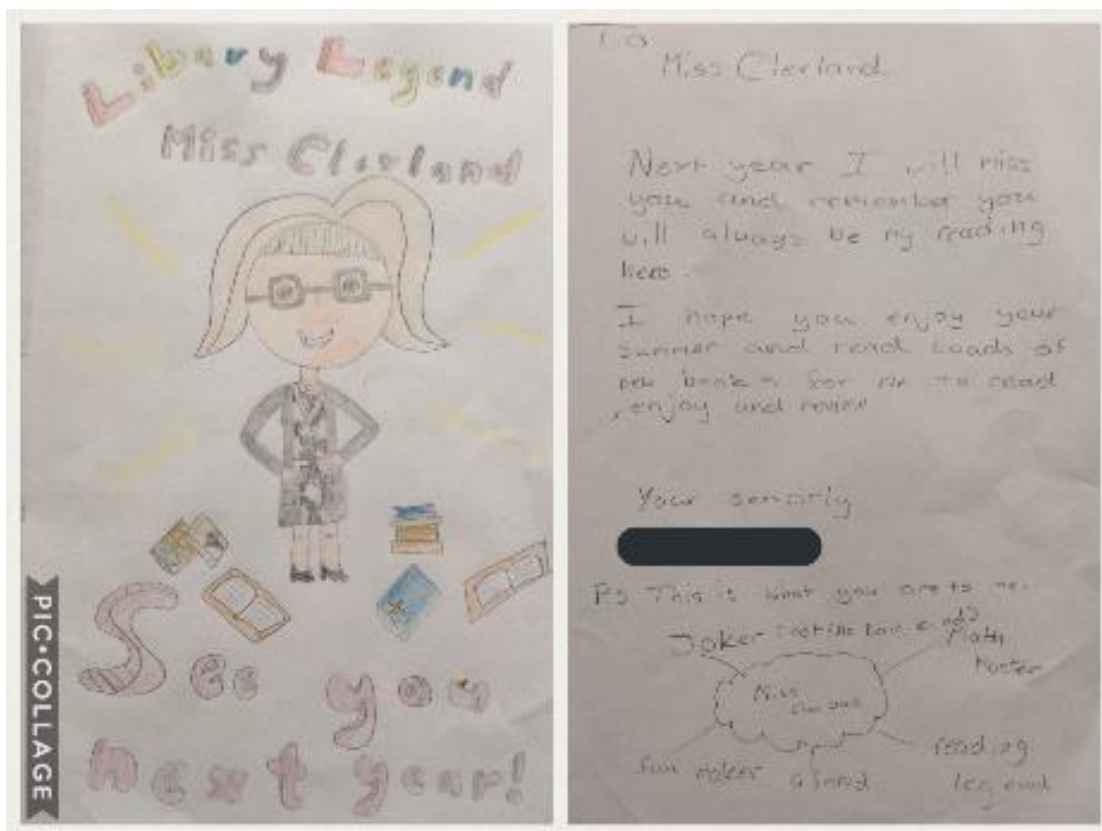 Library Legend
Miss Clerland
See you
next year!
PIC•COLLAGE
To
Miss Clerland
Next year I will miss
you and remember you
will always be my reading
hero.
I hope you enjoy your
summer and read loads of
new books for me to read
, enjoy and review
Your sencirly
PS This is what you are to me.
Joker
Math
Master
Miss
fun maker
a friend
reading
legend